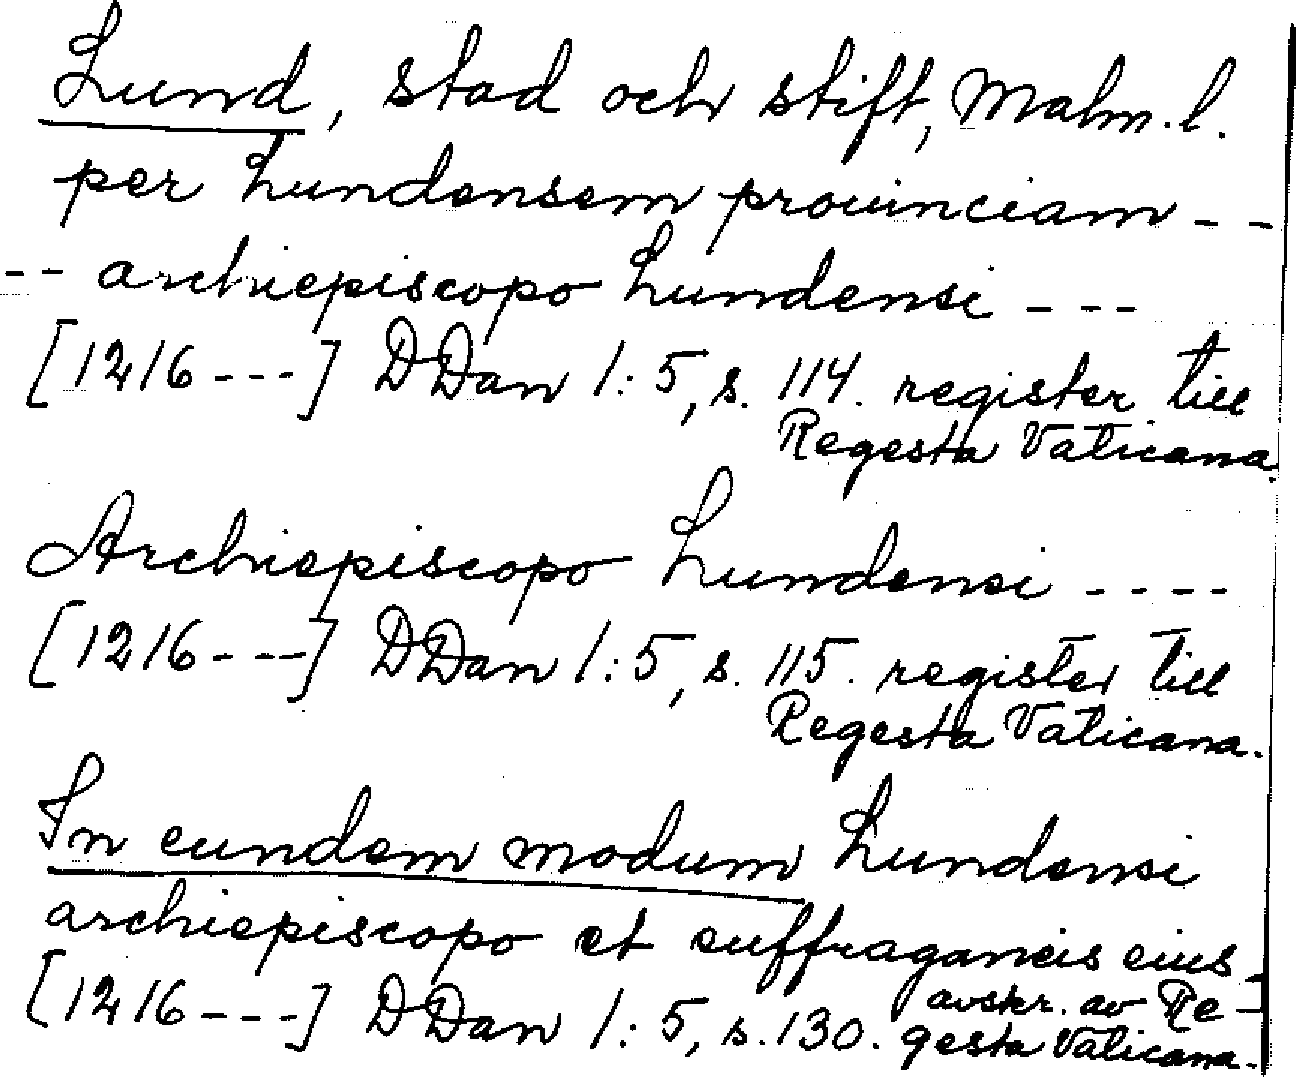 Lund, stad och stift, Malm.l.
per Lundensem prouinciam - -
-- archiepiscopo Lundensi - - -
[1216 - - -] DDan 1:5, s. 114. register till
Regesta Vaticana.
Archiepiscopo Lundensi - - - -
[1216 - - -] DDan 1:5, s. 115. register till
Regesta Vaticana.
In eundem modum Lundensi
archiepiscopo et suffraganeis eius.
[1216 - - -] DDan 1:5, s. 130. avskr. av Re-
gesta Vaticana.